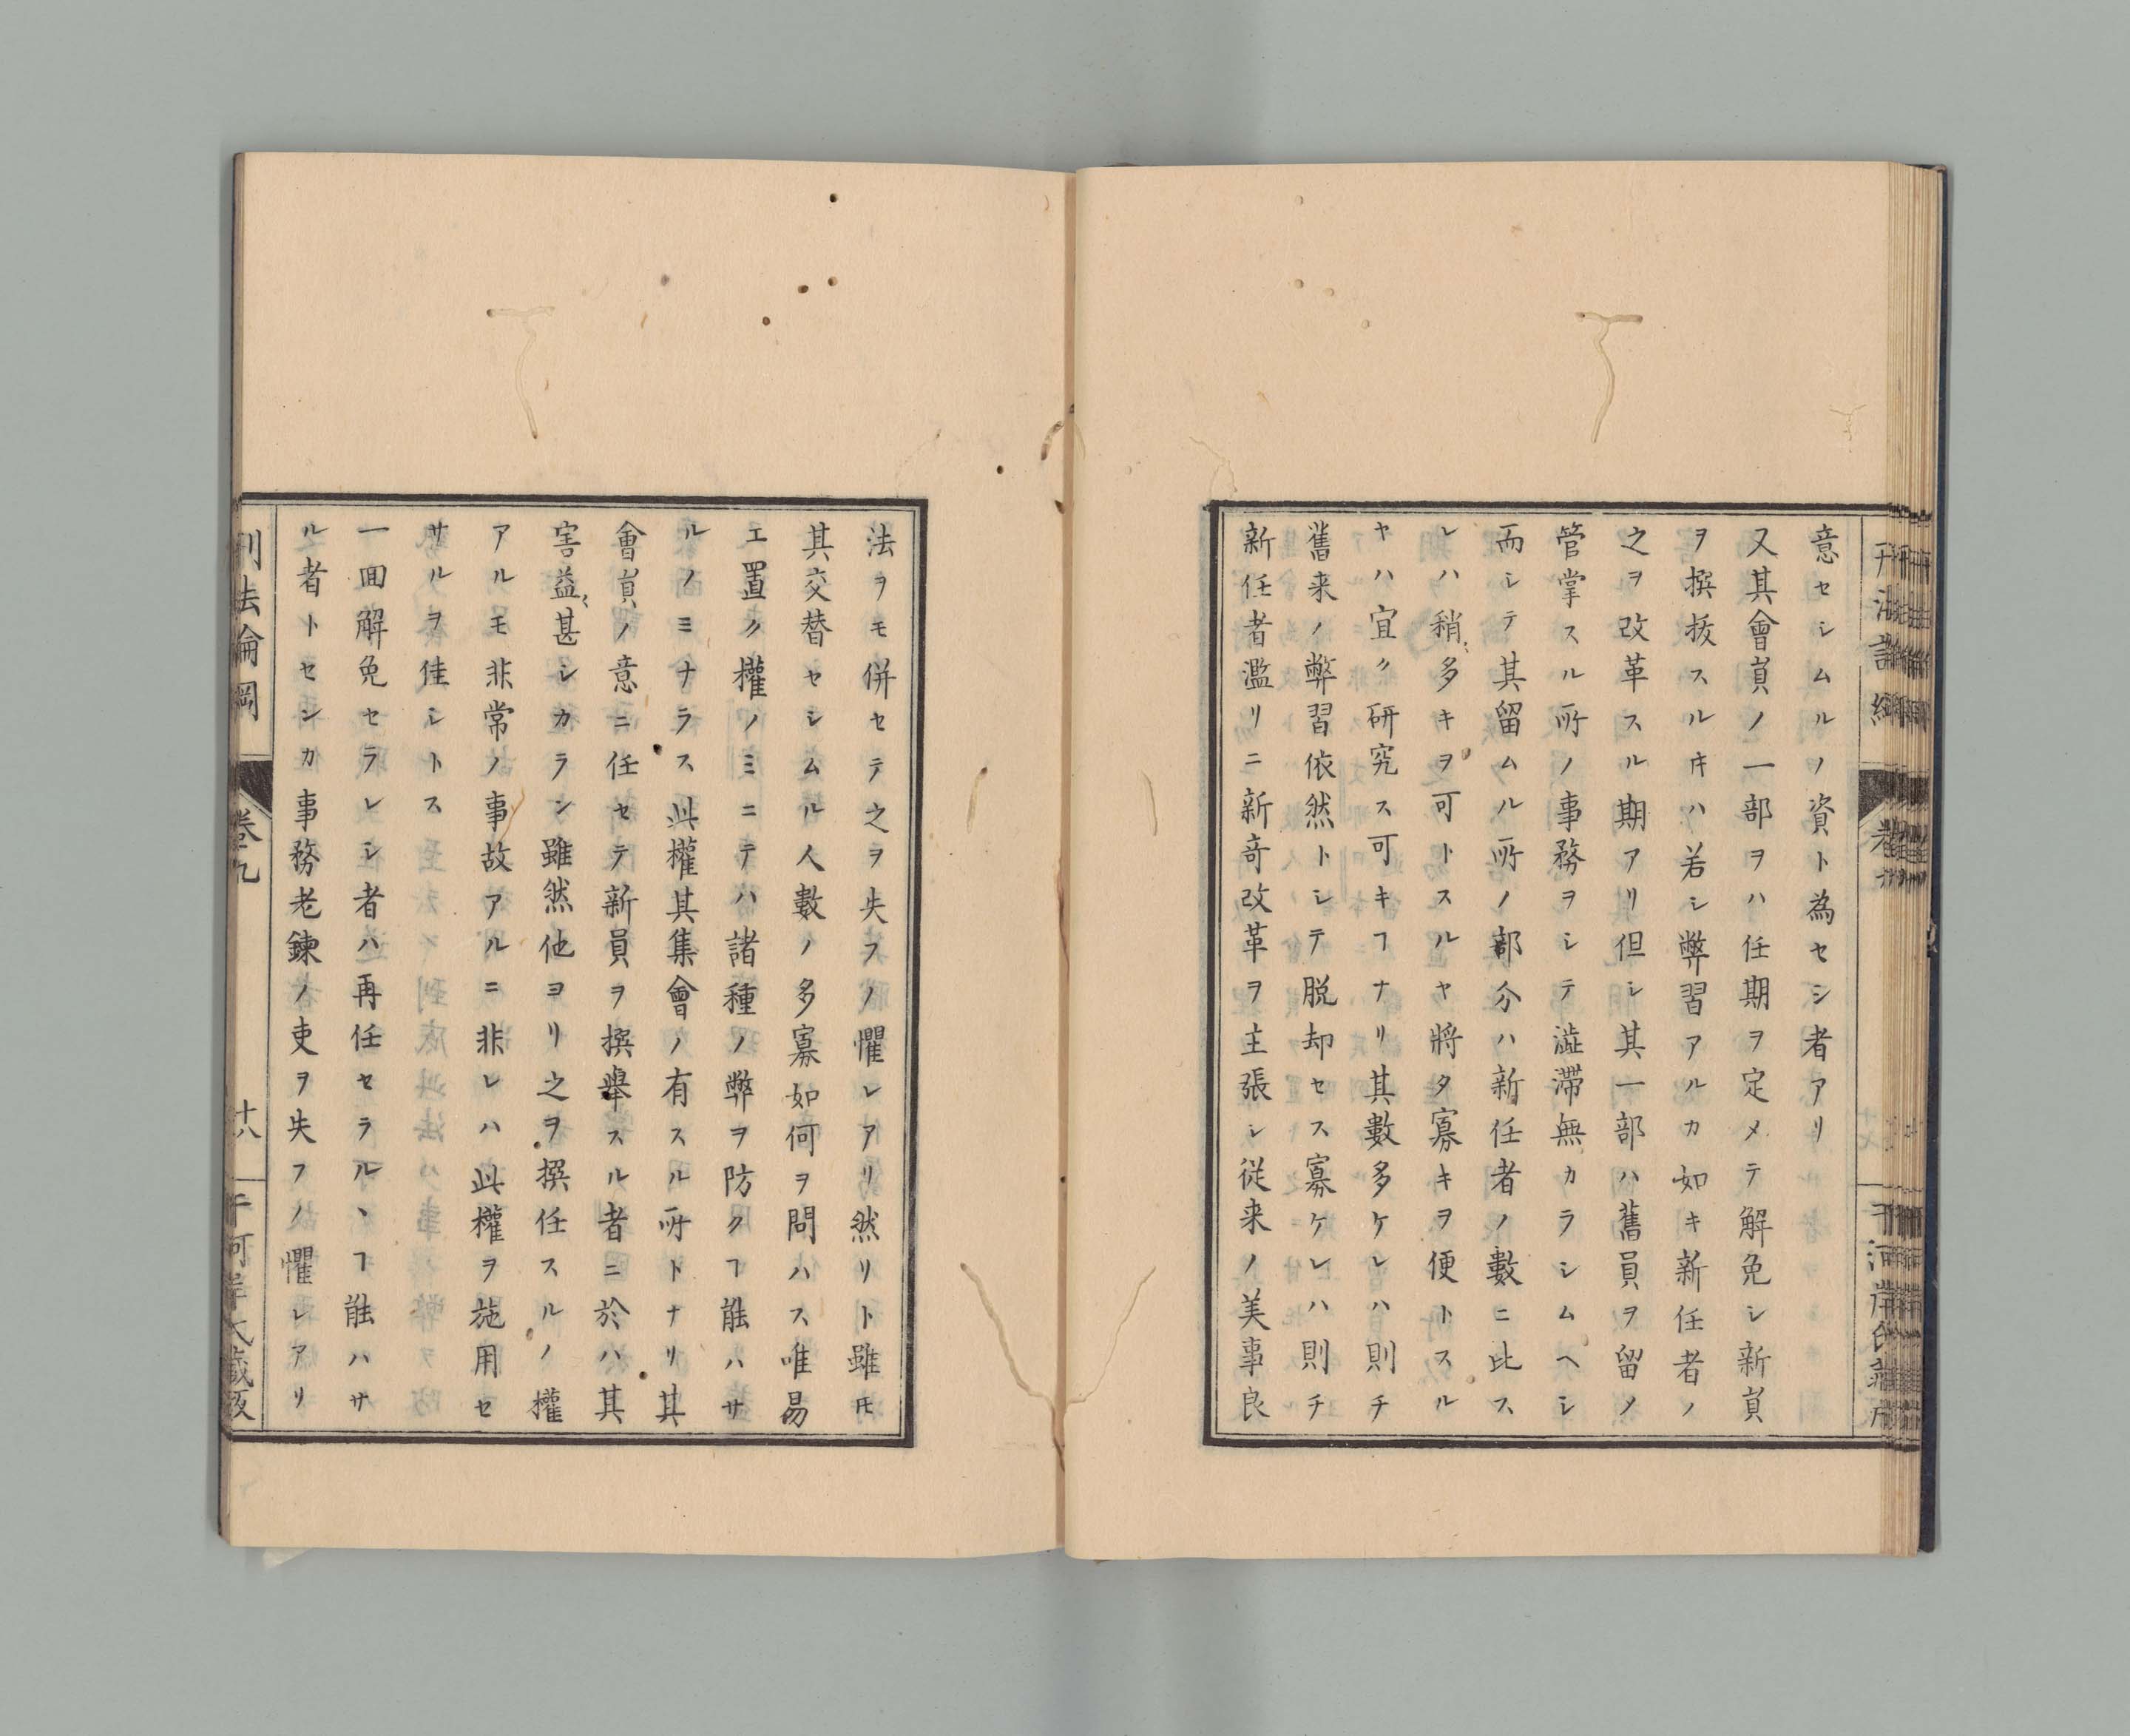 意セシムルノ資ト為セシ者アリ
又其會員ノ一部ヲハ任期ヲ定メテ解免シ新員
ヲ撰抜スルヿハ若シ弊習アルカ如キ新任者ノ
之ヲ改革スル期アリ但シ其一部ハ舊員ヲ留メ
管掌スル所ノ事務ヲシテ澁滞無カラシムヘシ
而シテ其留ムル所ノ部分ハ新任者ノ數ニ比ス
レハ稍〻多キヲ可トスルヤ將タ寡キヲ便トスル
ヤハ宜ク研究ス可キヿナリ其數多ケレハ則チ
舊来ノ弊習依然トシテ脱却セス寡ケレハ則チ
新任者濫リニ新竒改革ヲ主張シ従来ノ美事良
法ヲモ併セテ之ヲ失フノ懼レアリ然リト雖𪜈
其交替セシムル人數ノ多寡如何ヲ問ハス唯易
エ置ク權ノミニテハ諸種ノ弊ヲ防クヿ能ハサ
ルノミナラス此權其集會ノ有スル所トナリ其
會員ノ意ニ任セテ新員ヲ撰舉スル者ニ於ハ其
害益〻甚シカラン雖然他ヨリ之ヲ撰任スルノ權
アルモ非常ノ事故アルニ非レハ此權ヲ施用セ
サルヲ佳シトス
一回解免セラレシ者ハ再任セラルヽヿ能ハサ
ル者トセンカ事務老錬ノ吏ヲ失フノ懼レアリ
刑法論綱
卷九
十八